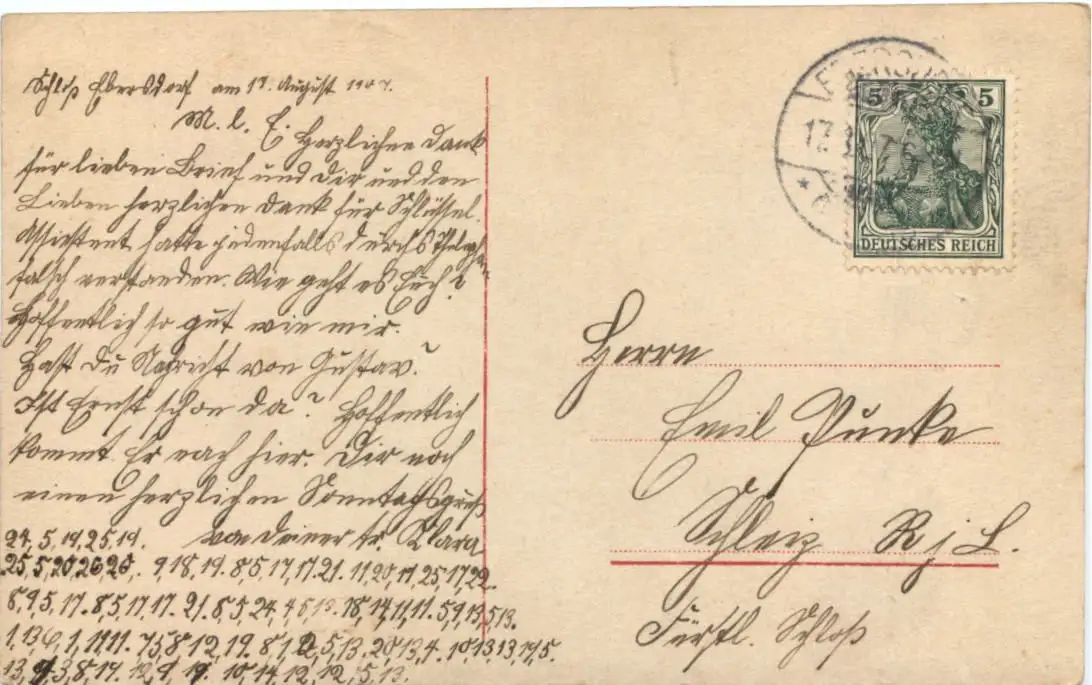 Schloß Ebersdorf am 17. August 1907.
M. l. E. Herzlichen Dank
für lieben Brief und Dir und den
Lieben herzlichen Dank für Schlüssel.
Assistent hatte jedenfalls durchs
falsch verstanden. Wie geht es Euch?
Hoffentlich so gut wie mir.
Hast Du Nachricht von Gustav?
Ist Ernst schon da? Hoffentlich
kommt Er nach hier. Dir noch
einen herzlichen Sonntagsgruß
von Deiner tr. Clara
24, 5, 19, 25, 19.
25, 5, 20, 26, 20, 9, 18, 19. 8, 5, 17, 17. 21. 11, 20, 19, 25, 17, 22.
8, 9, 5, 17. 8, 5, 17, 17. 21. 8, 5, 24, 18, 14, 11, 11. 5, 9, 13, 5, 13.
1, 13, 6, 1, 11, 11. 8, 12, 19. 5, 13. 20, 13, 4. 10, 13, 13, 19, 5.
3, 8, 19. 10, 14, 12, 12, 5, 13.
5 5
DEUTSCHES REICH
Herrn
Emil Punke
Schleiz R j L.
Fürstl. Schloß